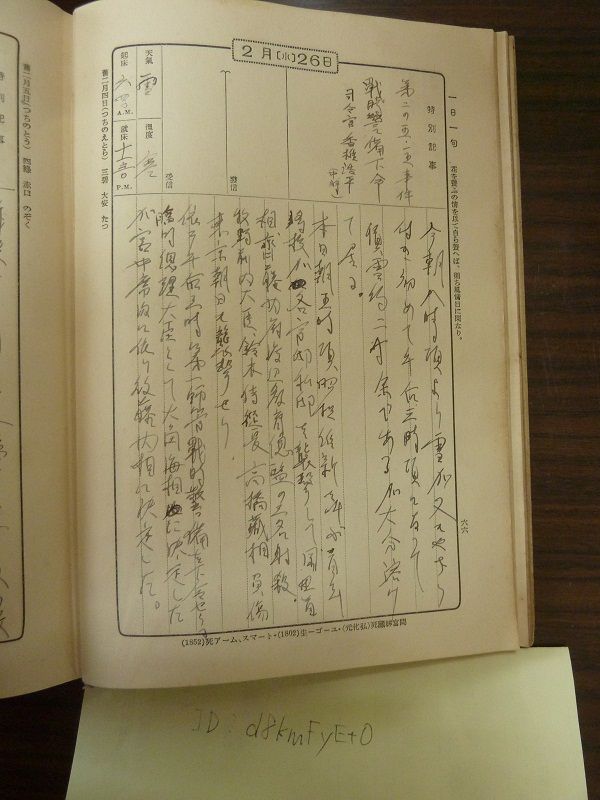 2月(水)26日
一日一句
六六
特別記事
第二の五・一五事件
戰時警備下令
司令官 香椎浩平
(中將)
發信
受信
天氣 雪
温度
起床 A.M.
就床 P.M.
舊二月四日(つちのえとら) 三碧 大安 たつ
今朝八時頃より雪が又もやちら
付き初めて午后三時頃になって
積雪約二寸余であるが大分溶け
て居る。
本日朝五時頃、昭和維新 青年
將校が各官邸私邸を襲撃して岡田首
相斎藤内府渡辺教育總監の三名射殺、
牧野前内大臣、鈴木侍從長 高橋藏相負傷
東京朝日を襲撃せり。
依って午后三時に第一師管戰時警備を下令せり。
臨時總理大臣として大角海相に決定した
が宮中席次に依り後藤内相に決定した。
(1852)死ムーア、トマス・(1802)生ーゴーユ・(元化弘)死藏林宮間
舊二月五日(つちのとう) 四緑 赤口 のぞく
特別記事
ID:d8kmFyEt0